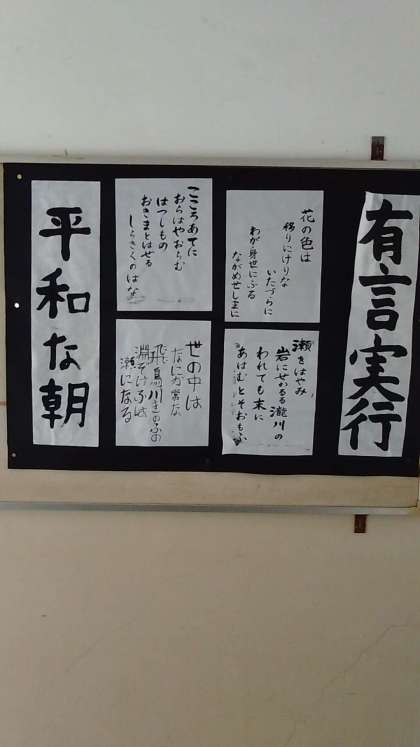 有言実行
花の色は
移りにけりな
いたづらに
わが身世にふる
ながめせしまに
瀬をはやみ
岩にせかるる
瀧川の
われても末に
あはむとぞおもふ
こころあてに
おらばやおらむ
はつしもの
おきまどはせる
しらきくのはな
世の中は
なにか常な
飛鳥川きのふの
淵ぞけふは
瀬になる
平和な朝